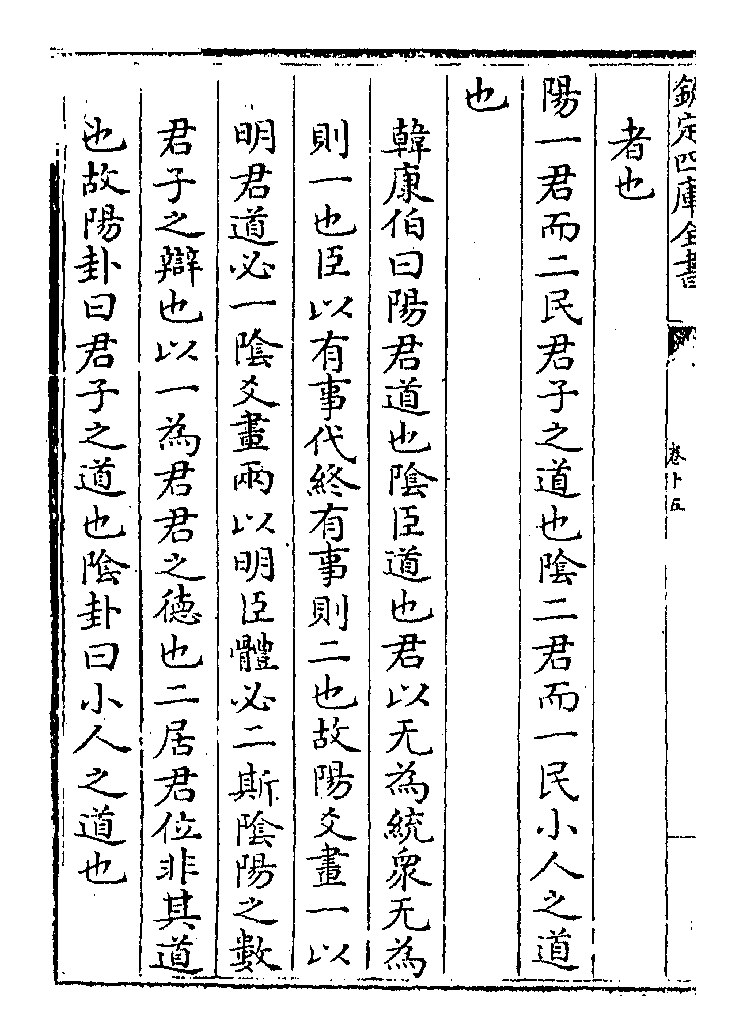 欽定四庫全書
卷十五
者也
陽一君而二民君子之道也陰二君而一民小人之道
也
韓康伯曰陽君道也陰臣道也君以无為統衆无為
則一也臣以有事代終有事則二也故陽爻畫一以
明君道必一陰爻畫兩以明臣體必二斯陰陽之數
君子之辯也以一為君君之德也二居君位非其道
也故陽卦曰君子之道也陰卦曰小人之道也